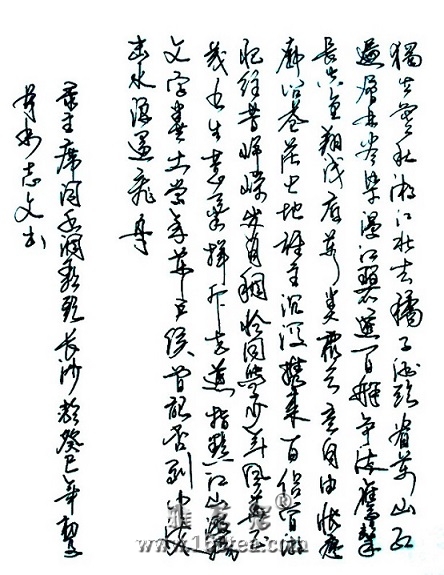 独立寒秋湘江北去橘子洲头看万山红
遍层林尽染漫江碧透百舸争流鹰击
长空鱼翔浅底万类霜天竞自由怅寥
廓问苍茫大地谁主沉浮携来百侣曾游
忆往昔峥嵘岁月稠恰同学少年风华正
茂书生意气挥斥方遒指点江山激扬
文字粪土当年万户侯曾记否到中流
击水浪遏飞舟
主席词沁园春长沙於癸巳年初夏
志文书